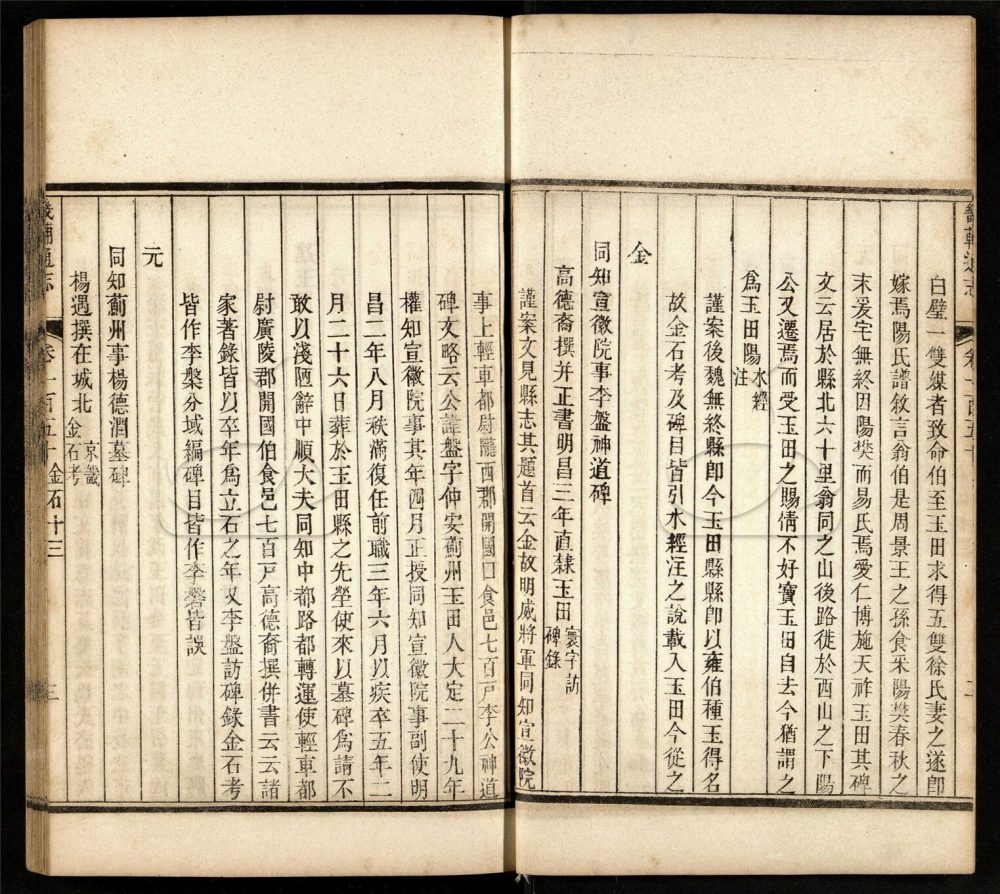 白璧一雙媒者致命伯至玉田求得五雙徐氏妻之遂卽
嫁焉陽氏譜敘言翁伯是周景王之孫食采陽樊春秋之
末爰宅無終因陽樊而易氏焉愛仁博施天祚玉田其碑
文云居於縣北六十里翁同之山後路徙於西山之下陽
公又遷焉而受玉田之賜情不好寶玉田自去今猶謂之
爲玉田陽水經注
謹案後魏無終縣卽今玉田縣縣卽以雍伯種玉得名
故金石考及碑目皆引水經注之說載入玉田今從之
金
同知宣徽院事李盤神道碑
高德裔撰并正書明昌三年直隸玉田寰宇訪碑錄
謹案文見縣志其題首云金故明威將軍同知宣徽院
事上輕車都尉隴西郡開國口食邑七百戸李公神道
碑文略云公諱盤字仲安薊州玉田人大定二十九年
權知宣徽院事其年四月正授同知宣徽院事副使明
昌二年八月秩滿復任前職三年六月以疾卒五年二
月二十六日葬於玉田縣之先塋使來以墓碑爲請不
敢以淺陋辭中順大夫同知中都路都轉運使輕車都
尉廣陵郡開國伯食邑七百戸高德裔撰併書云云諸
家著錄皆以卒年爲立石之年又李盤訪碑錄金石考
皆作李槃分域編碑目皆作李磐皆誤
元
同知薊州事楊德潤墓碑
楊遇撰在城北京畿金石考
畿輔通志
卷一百五十
金石十三
三